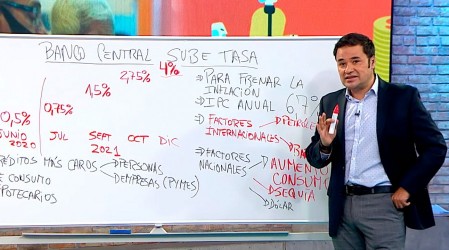 BANCO CENTRAL SUBE TASA
0,5%
JUNIO
2020
0,75%
JUL
1,5%
SEPT
2021
2,75%
OCT
4%
DIC
CRÉDITOS MÁS CAROS
PERSONAS
EMPRESAS (PYMES)
DE CONSUMO
HIPOTECARIOS
PARA FRENAR LA
INFLACIÓN
IPC ANUAL 6,7%
FACTORES
INTERNACIONALES
FACTORES
NACIONALES
AUMENTO
CONSUMO
SEQUÍA
DÓLAR